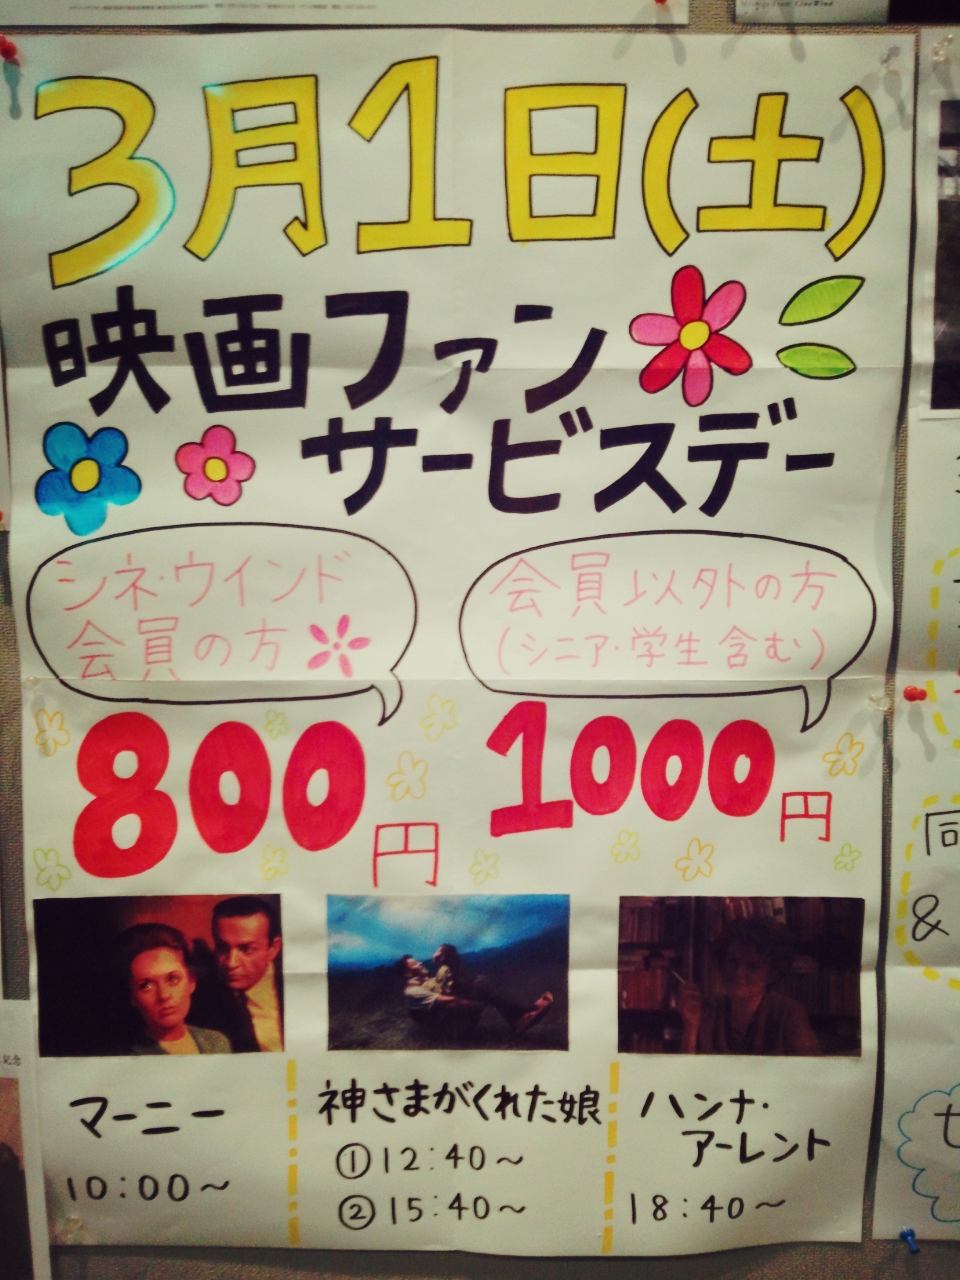 3月1日(土)
映画ファン
サービスデー
シネ・ウインド
会員の方
800円
会員以外の方
(シニア・学生含む)
1000円
マーニー
10:00～
神さまがくれた娘
①12:40～
②15:40～
ハンナ・
アーレント
18:40～
同
&